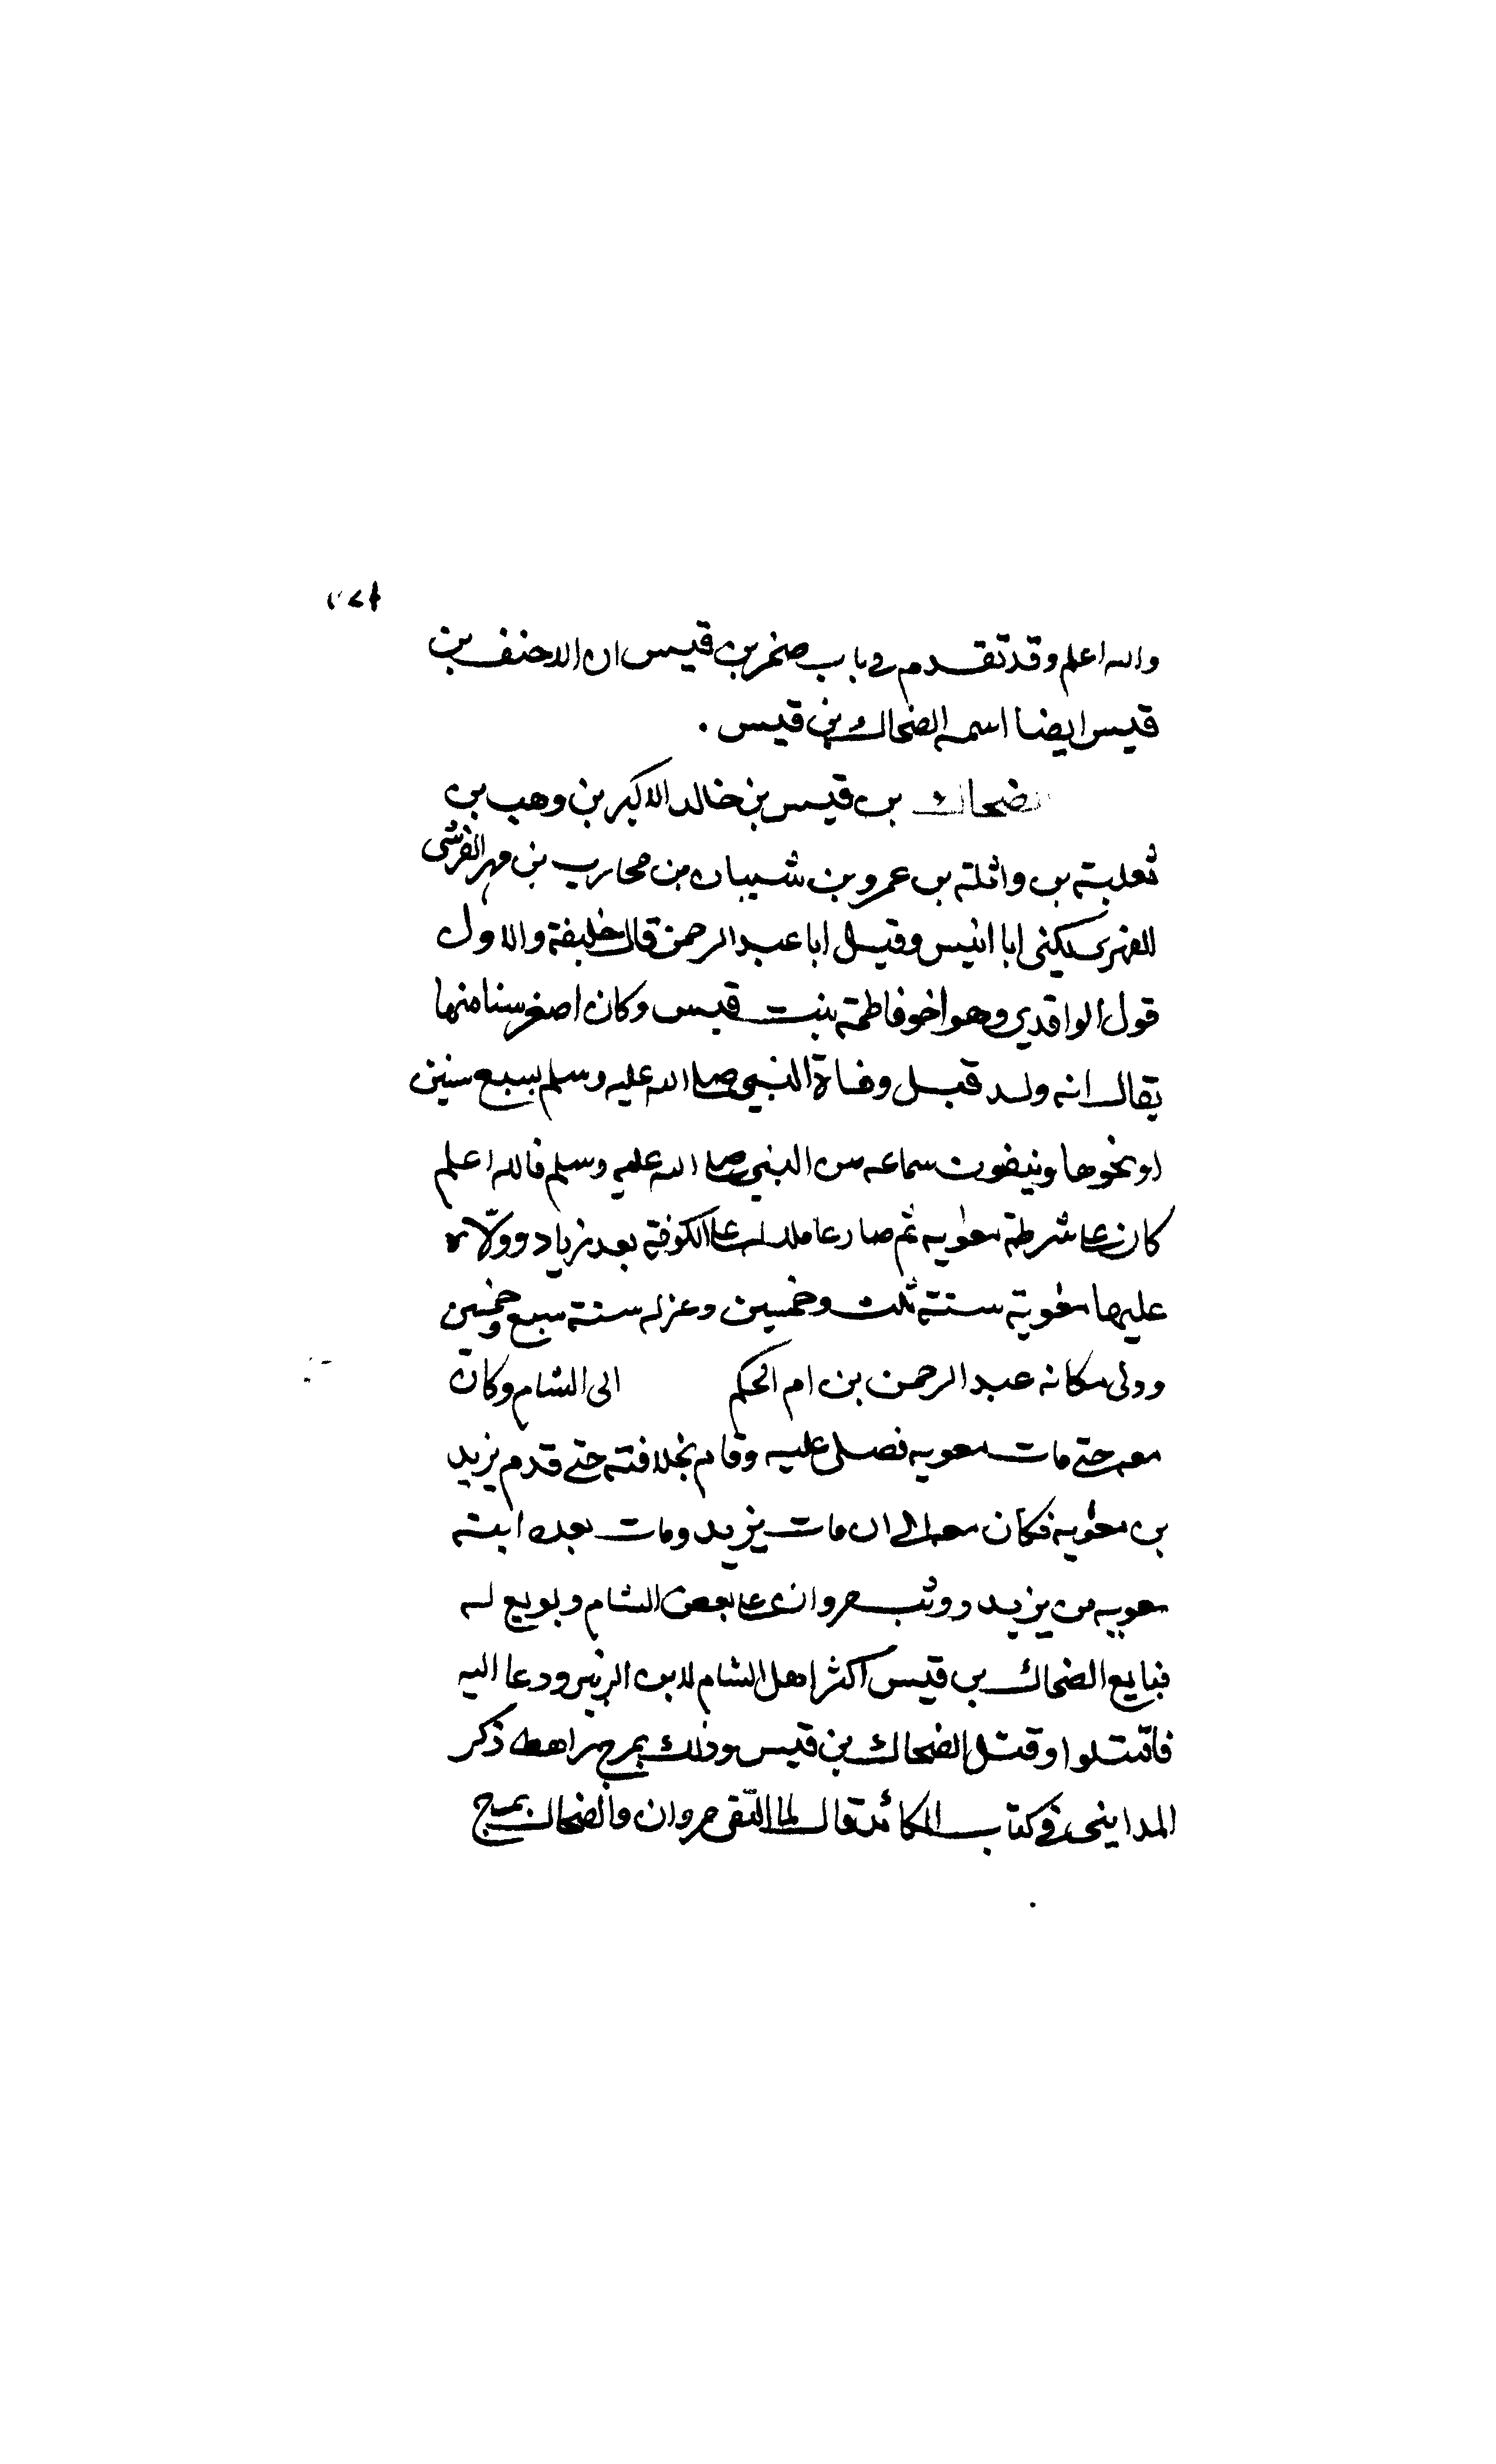 والله اعلم وقد تقدم في باب صخر بن قيس ان الاحنف بن
قيس ايضا اسمه الضحاك بن قيس .
الضحاك بن قيس بن خالد الاكبر بن وهب بن
ثعلبة بن واثلة بن عمرو بن شيبان بن محارب بن فهر القرشي
الفهري يكنى ابا انيس وقيل ابا عبد الرحمن قاله خليفة والاول
قول الواقدي وهو اخو فاطمة بنت قيس وكان اصغر سنا منها
يقال انه ولد قبل وفاة النبي صلى الله عليه وسلم بسبع سنين
او نحوها وينفون سماعه من النبي صلى الله عليه وسلم فالله اعلم
كان على شرطة معوية ثم صار عاملا له على الكوفة بعد زياد وولاه
عليها معوية سنة ثلث وخمسين وعزله سنة سبع وخمسين
وولى مكانه عبد الرحمن بن ام الحكم الى الشام وكان
معه حتى مات معوية فصلى عليه وقام بخلافته حتى قدم يزيد
بن معوية فكان معه الى ان مات يزيد ومات بعده ابنه
معوية بن يزيد ووثب مروان على بعض الشام وبويع له
فبايع الضحاك بن قيس اكثر اهل الشام لابن الزبير ودعا اليه
فاقتتلوا وقتل الضحاك بن قيس وذلك بمرج راهط ذكر
المدايني في كتاب المكائد قال لما التقى مروان والضحاك بمرج